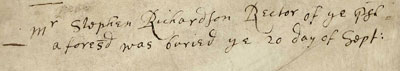 Mr Stephen Richardson Rector of ye Psh
aforesd was buried ye 20 day of Sept: